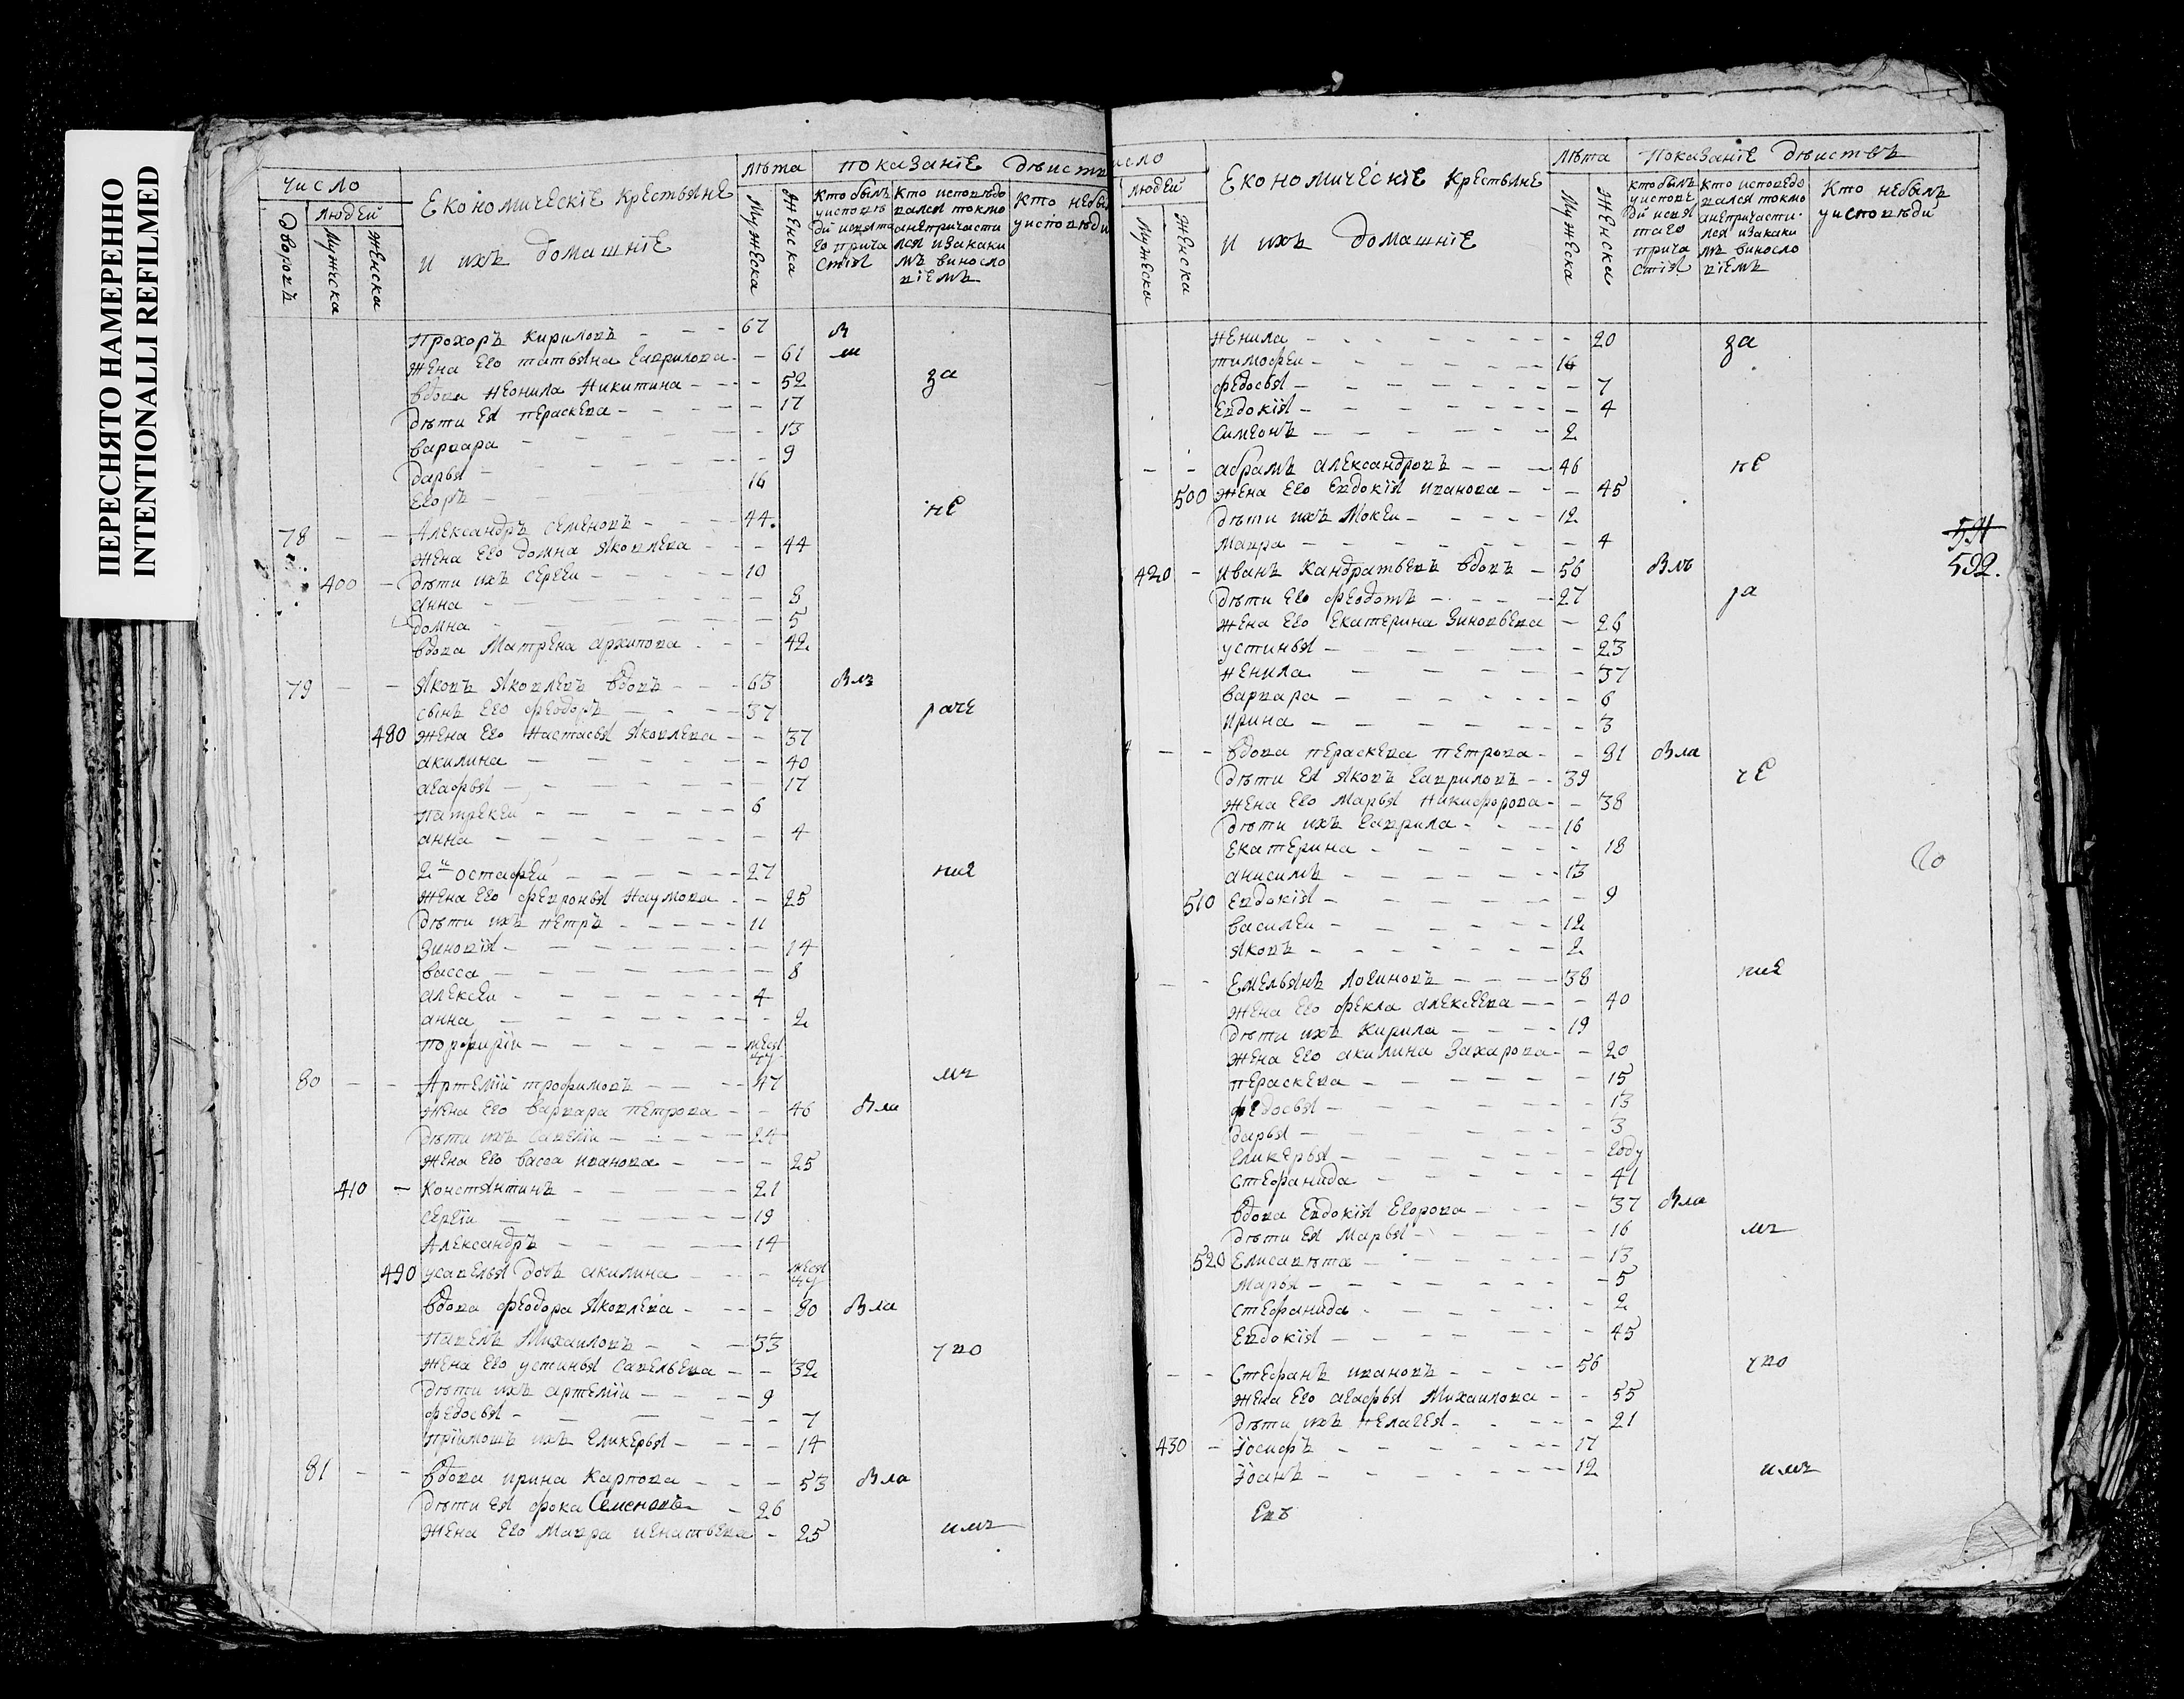 ПЕРЕСНЯТО НАМЕРЕННО
INTENTIONALLI REFILMED
число
людей
дворовъ
мужеска
женска
Економическіе крестьяне
и ихъ домашніе
лѣта
мужеска
женска
показаніе дѣиств
кто былъ у исповѣди и свята го прича стия
кто исповѣдо вался токмо а не причасти лся и за каки мъ виносло віемъ
кто не бы у исповѣди
прохоръ кириловъ - - - 67 в
жена его татьяна гаврилова - - 61 ли
вдова неонила никитина - - - 52 за
дѣти ея пераскева - - - 17
варвара - - - 13
дарья - - - 9
егоръ - 16
78 - - Александръ семеновъ - - - 44. не
жена его домна яковлева - - - 44
400 - дѣти ихъ сергеи - - - 10
анна - - - 8
домна - - - 5
вдова матрена архипова - - 42
79 - - яковъ яковлевъ вдовъ - - - 63 влъ
сынъ его феодоръ - - - 37 раче
480 жена его настасья яковлева - - 37
акилина - - - 40
агафья - - - 17
патрекеи - - - 6
анна - - - 4
2й остафеи - - - 27 ние
жена его февронья наумова - - 25
дѣти ихъ петръ - - - 11
зиновія - - - 14
васса - - - 8
алексеи - - - 4
анна - - - 2
порфиріи - - -
80 - - Артеміи трофимовъ - - - 47 мъ
жена его варвара петрова - - 46 вла
дѣти ихъ савеліи - - - 24
жена его васса иванова - - - 25
410 - константинъ - - - 21
сергіи - - - 19
Александръ - - - 14
490 у савелья дочь акилина - - -
вдова феодора яковлева - - - 80 вла
павелъ михаиловъ - - - 33 що
жена его устинья савельева - - 32
дѣти ихъ артеміи - - - 9
федосья - - - 7
пріимошъ ихъ гликерья - - - 14
81 - - вдова ирина карпова - - - 53 вла
дѣти ея фока Семеновъ - 26
жена его мавра игнатьева - 25 имъ
исло
людей
мужеска
женска
Економическіе крестьяне
и ихъ домашніе
лѣта
мужеска
женска
показаніе дѣиствъ
кто былъ у исповѣ ди и свя таго прича стия
кто исповѣдо вался токмо а не причасти лся и за каки мъ виносло віемъ
кто не былъ у исповѣди
ненила - - - 20 за
тимофеи - - - 14
федосья - - - 7
евдокія - - - 4
симеонъ - - - 2
- - абрамъ александровъ - - - 46 не
500 жена его евдокія иванова - - - 45
дѣти ихъ мокеи - - - 12
мавра - - - 4
591
592.
420 - иванъ кандратьевъ вдовъ - 56 влъ
дѣти его феодотъ - - - 27 ра
жена его екатерина зиновьева - 26
устинья - - - 23
ненила - - - 37
варвара - - - 6
ирина - - - 3
- - вдова пераскева петрова - - 81 вла
дѣти ея яковъ гавриловъ - - 39 че
жена его марья никифорова - - 38
дѣти ихъ гаврила - - - 16
екатерина - - - 18
анисимъ - - - 13
510 евдокія - - - 9
василеи - - - 12
яковъ - - - 2
- - емельянъ логиновъ - - - 38 ние
жена его фекла алексеева - - - 40
дѣти ихъ кирила - - - 19
жена его акилина захарова - - 20
пераскева - - - 15
федосья - - - 13
дарья - - - 3
гликерья - - - году
стефанида - - - 41
вдова евдокія егорова - - - 37 вла
дѣти ея марья - - - 16 мъ
520 елисавѣта - - - 13
марья - - - 5
стефанида - - - 2
евдокія - - - 45
- - стефанъ ивановъ - - - 56 що
жена его агафья михаилова - - 55
дѣти ихъ пелагея - - - 21
430 - іосифъ - - - 17
іоанъ - - - 12 имъ
евъ